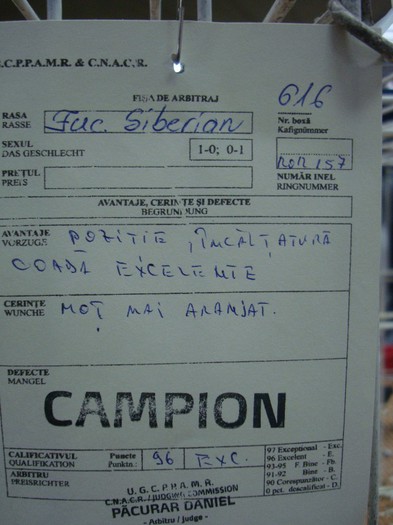 .C.P.P.A.M.R. & C.N.A.C.R.
FIȘA DE ARBITRAJ
616
RASA
RASSE
Juc. Siberian
Nr. boxă
Kafignümmer
SEXUL
DAS GESCHLECHT
1-0; 0-1
ROR 157
PREȚUL
PREIS
NUMĂR INEL
RINGNUMMER
AVANTAJE, CERINȚE ȘI DEFECTE
BEGRUNDUNG
AVANTAJE
VORZUGE
POZITIE, ÎNCĂLȚATURĂ
COADA EXCELENTE
CERINȚE
WUNCHE
MOȚ MAI ARANJAT.
DEFECTE
MANGEL
CAMPION
CALIFICATIVUL
QUALIFIKATION
Puncte
Punktn.:
96
EXC.
97 Exceptional - Exc.
96 Excelent - E.
93-95 F. Bine - Fb.
91-92 Bine - B.
90 Corespunzător - C.
0 pct. descalificat - D.
ARBITRU
PREISRICHTER
U. G. C. P. P. A. M. R.
C.N.A.C.R. / JUDGING COMMISSION
PĂCURAR DANIEL
- Arbitru / Judge -